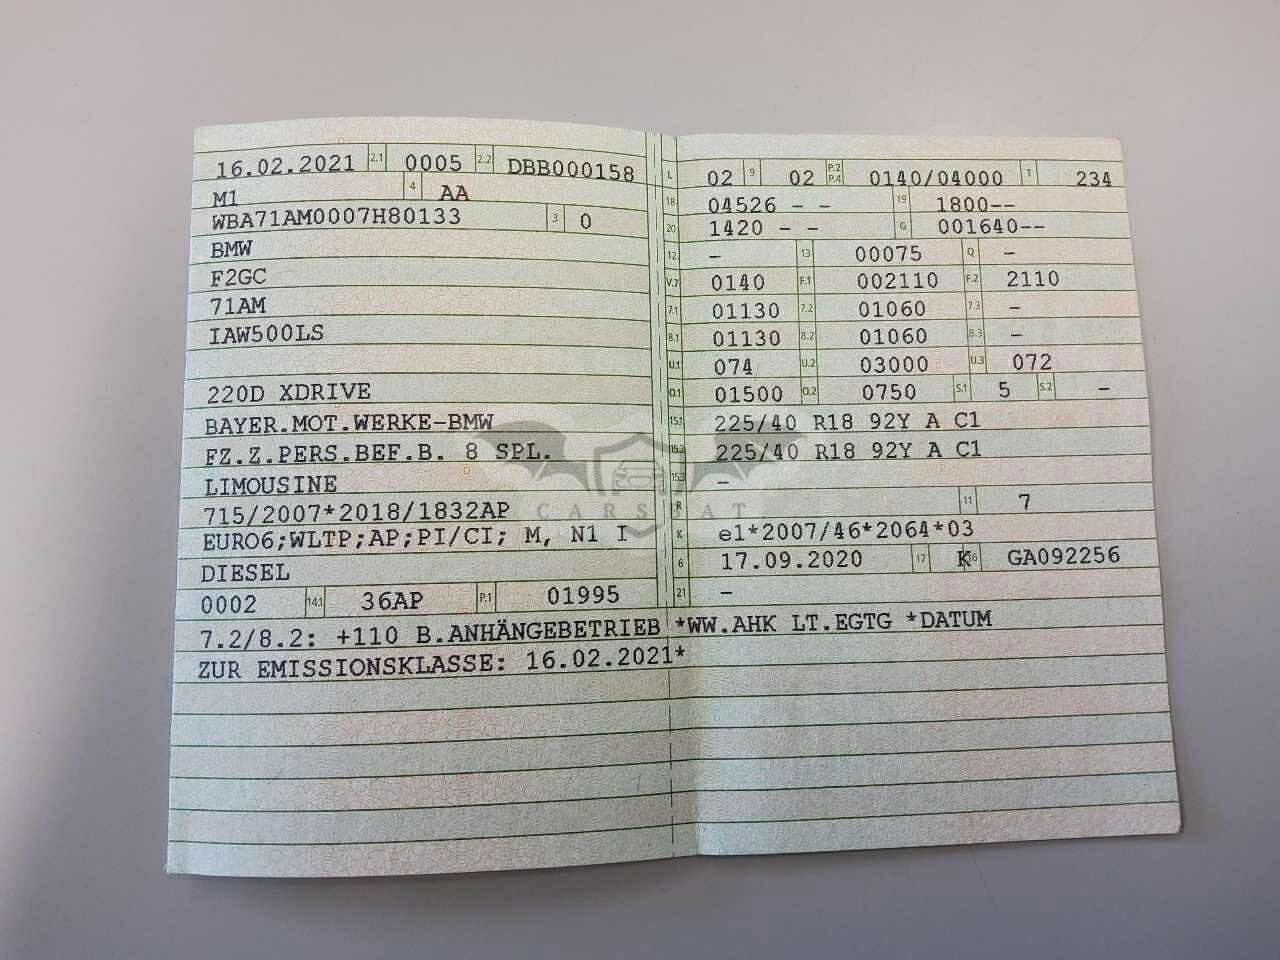 16.02.2021 2.1 0005 2.2 DBB000158
M1 4 AA
WBA71AM0007H80133 3 0
BMW
F2GC
71AM
IAW500LS
220D XDRIVE
BAYER.MOT.WERKE-BMW
FZ.Z.PERS.BEF.B. 8 SPL.
LIMOUSINE
715/2007*2018/1832AP
EURO6;WLTP;AP;PI/CI; M, N1 I
DIESEL
0002 14.1 36AP P.1 01995
L 02 9 02 P.2 P.4 0140/04000 T 234
18 04526 - - 19 1800--
20 1420 - - G 001640--
12 - 13 00075 Q -
V.7 0140 F.1 002110 F.2 2110
7.1 01130 7.2 01060 7.3 -
8.1 01130 8.2 01060 8.3 -
U.1 074 U.2 03000 U.3 072
O.1 01500 O.2 0750 S.1 5 S.2 -
15.1 225/40 R18 92Y A C1
15.2 225/40 R18 92Y A C1
15.3 -
R 11 7
K e1*2007/46*2064*03
6 17.09.2020 17 K 16 GA092256
21 -
7.2/8.2: +110 B.ANHÄNGEBETRIEB *WW.AHK LT.EGTG *DATUM
ZUR EMISSIONSKLASSE: 16.02.2021*
CARSBAT